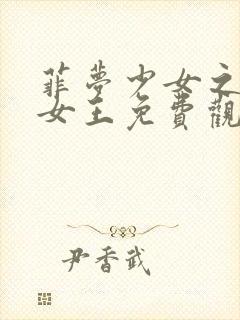 菲夢少女之
女王免費觀
尹香武